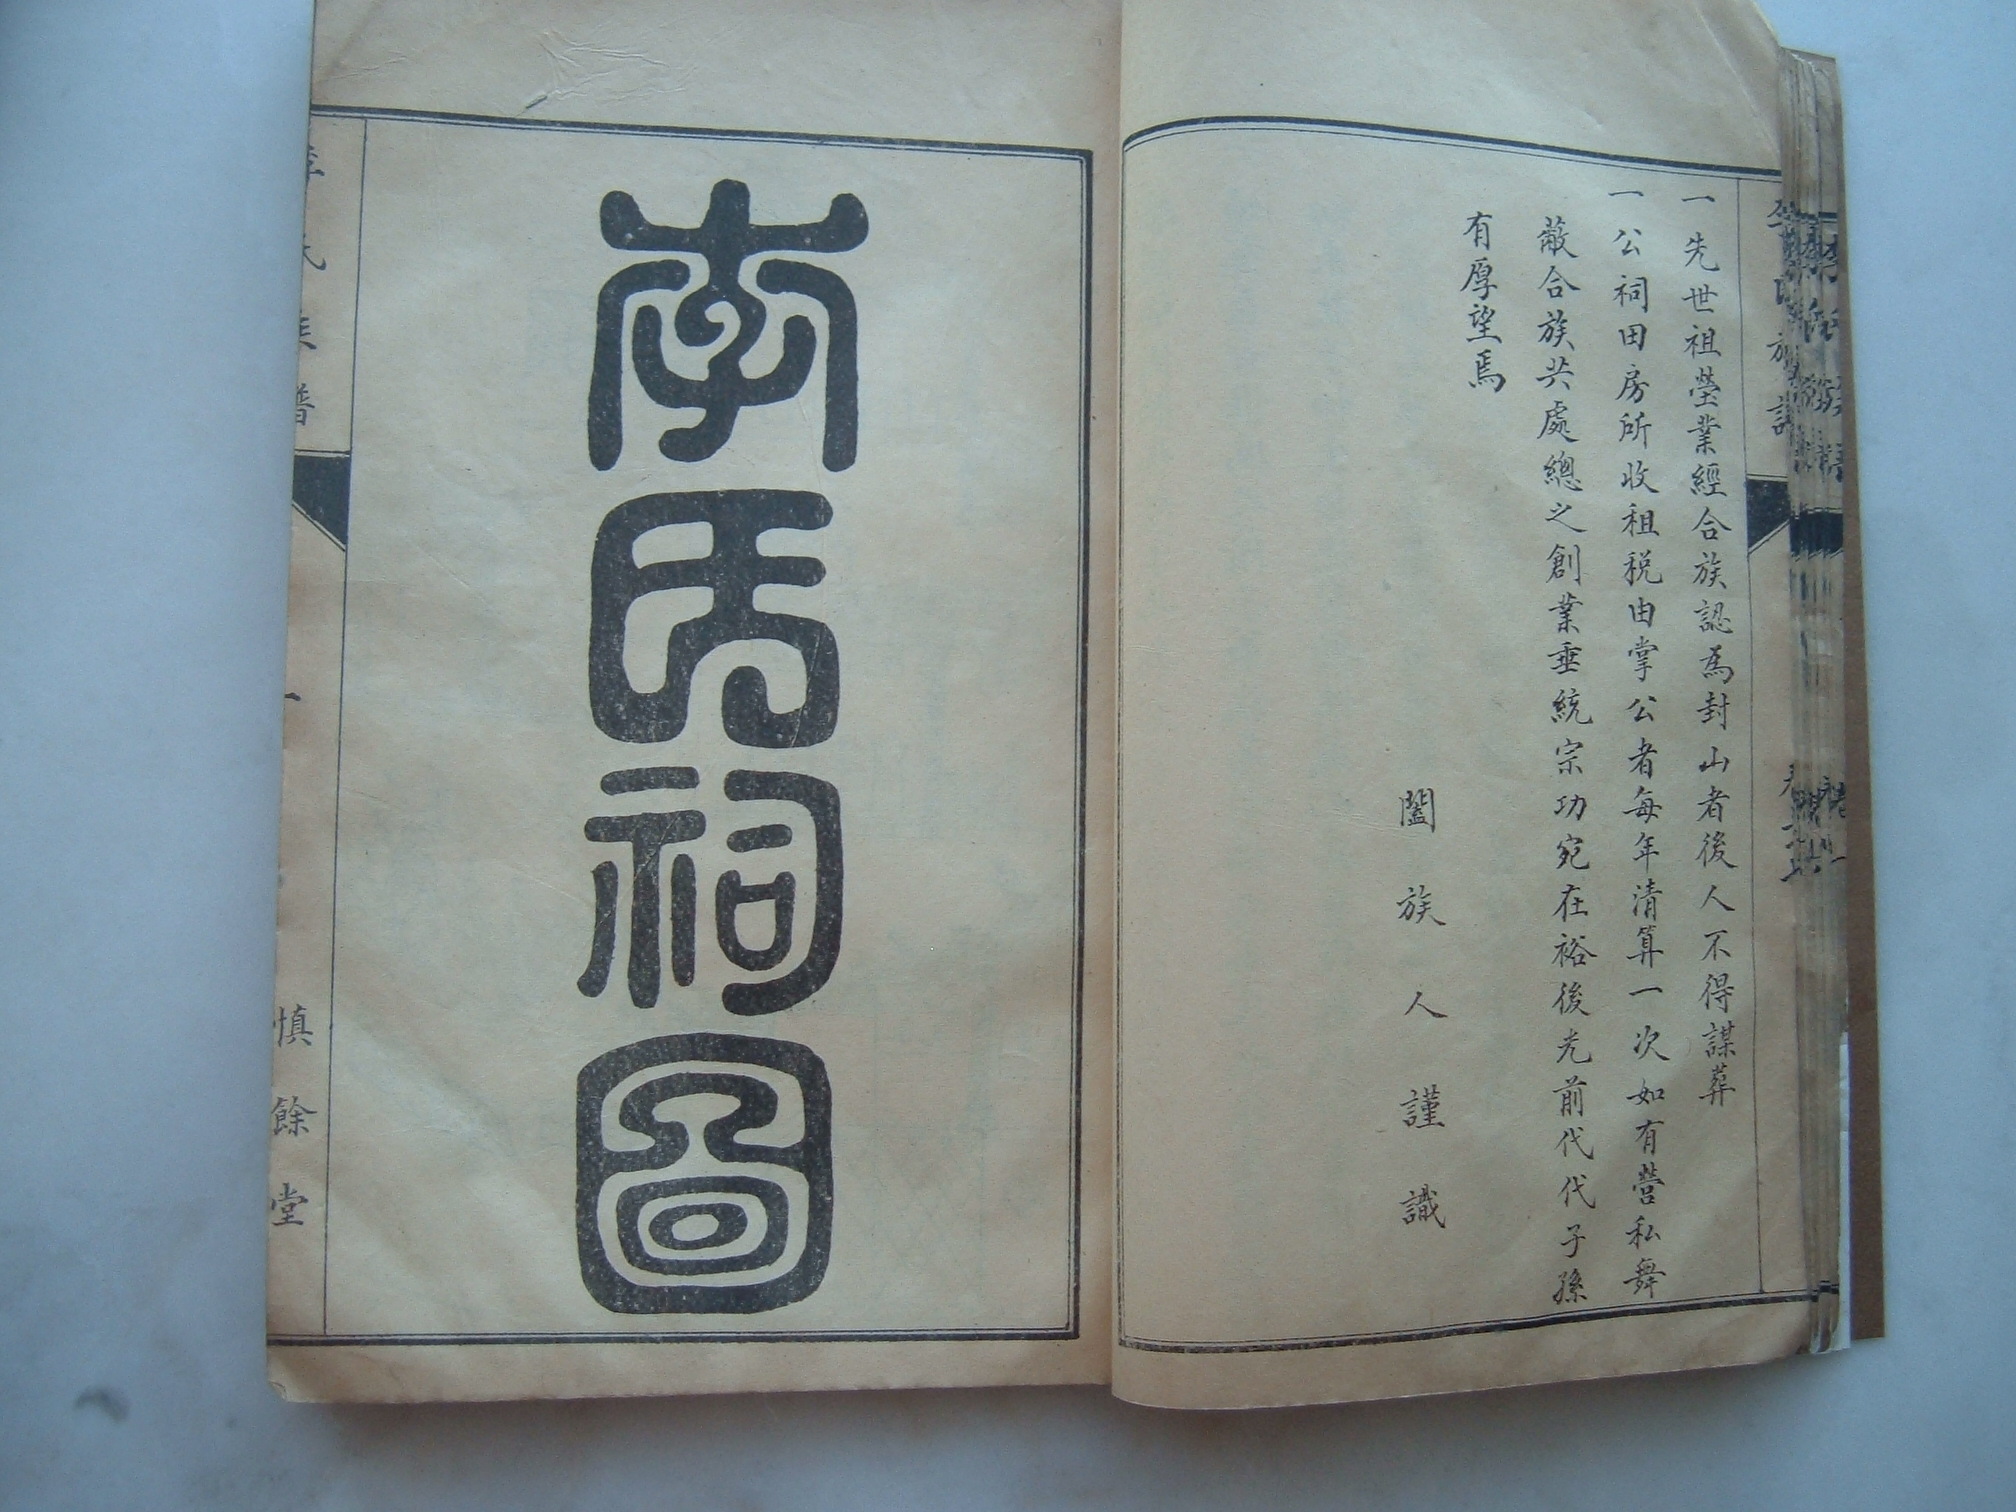 一先世祖塋業經合族認為封山者後人不得謀葬
一公祠田房所收租税由掌公者每年清算一次如有營私舞
蔽合族共處總之創業垂統宗功宛在裕後光前代代子孫
有厚望焉
闔族人謹識
李氏祠圖
李氏族譜
一
慎餘堂